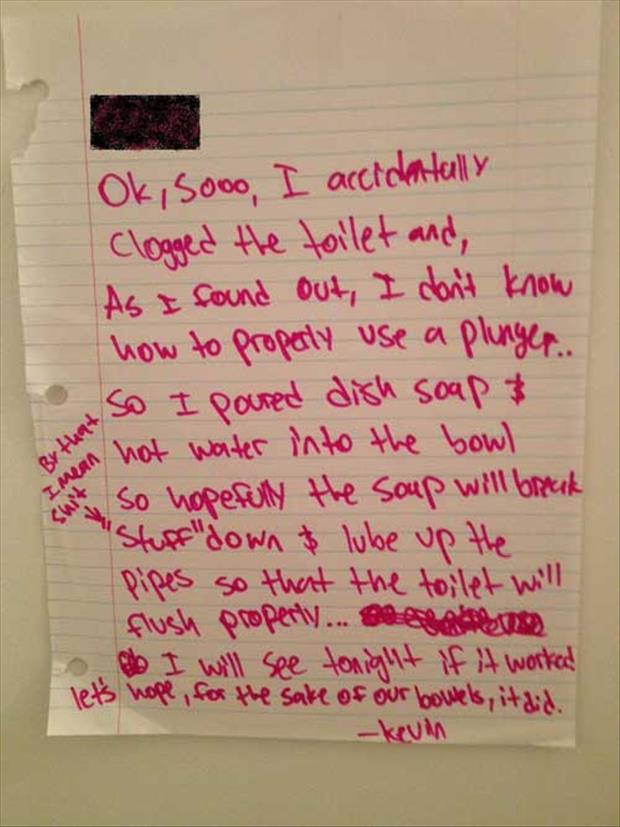 Ok, Sooo, I accidentally
Clogged the toilet and,
As I found out, I don't know
how to properly use a plunger..
So I poured dish soap &
hot water into the bowl
So hopefully the soap will break
By that
I mean
shit
"Stuff" down & lube up the
pipes so that the toilet will
flush properly...
I will see tonight if it worked
let's hope, for the sake of our bowels, it did.
-Kevin